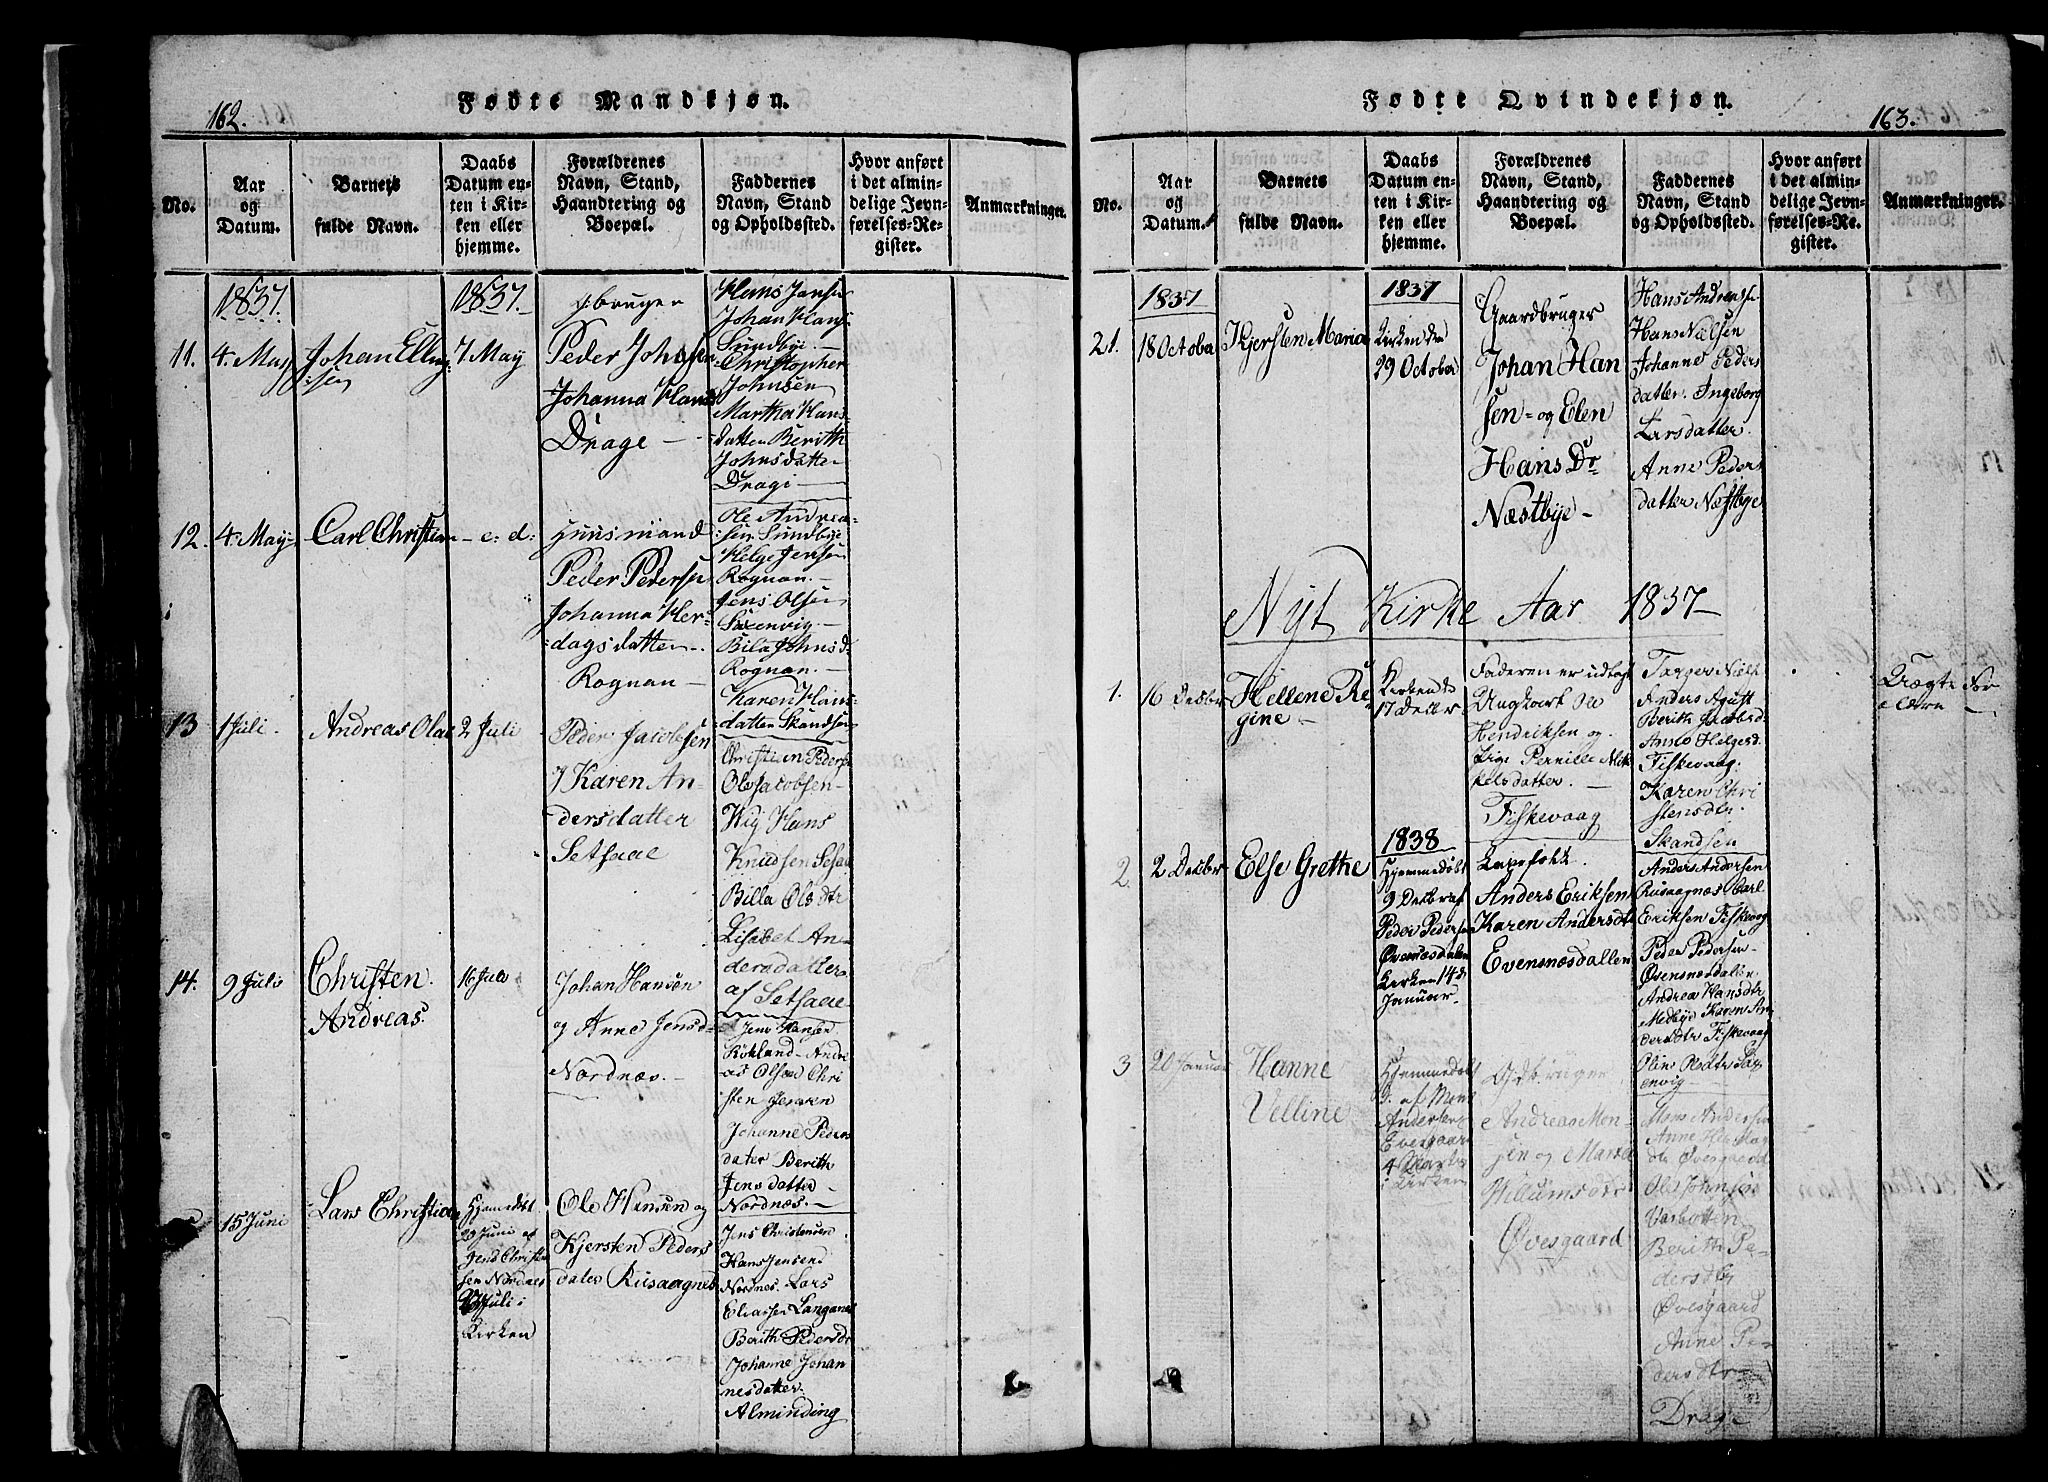 162.
Fødte Mandkjøn.
No.
Aar
og
Datum.
Barnets
fulde Navn.
Daabs
Datum en-
ten i Kir-
ken eller
hjemme.
Forældrenes
Navn, Stand,
Haandtering og
Boepæl.
Faddernes
Navn, Stand
og Opholdssted.
Hvor anført
i det almin-
delige Jevn-
førelses-Re-
gister.
Anmærkninger.
1837.
11.
4. May
Johan Elling
sen
1837.
7 May
gbruger
Peder Johnsen
Johanna Hans
Drage
Hans Jansen
Johan Hans
Sundbye
Christopher
Johnsen
Martha Hans
datter Berith
Johnsdatter
Drage
12.
4. May
Carl Christian
e: d:
Huusmand
Peder Peders
Johanna Her-
dagsdatter
Rognan
Ole Andrea-
sen Sundbye
Helge Jensen
Rognan.
Jens Olsen
Saxenvig.
Bila Johnsd.
Rognan.
Karen Hans
datter Skandsen
13
1 Juli.
Andreas Olai
2 Juli
Peder Jacobsen
Karen An-
dersdatter
Setsaae
Christian Peders
Ole Jacobsen
Wig Hans
Knudsen Setsaa
Billa Olsdtr
Lisabet An-
dersdatter
af Setsaae
14.
9 Juli
Christen
Andreas.
16 Juli
Johan Hansen
og Anne Jensd
Nordnæs.
Jens Hansen
Røkland Andre
as Olsen Chri
sten Jensen
Johanne Peders
dater Berith
Jensdatter
Nordnæs.
15 Juni
Lars Christian
Hjemmedøbt
20 Juni af
Jens Christen
sen Nordnæs
Juli i
Kirken
Ole Hansen og
Kjersten Peders
dater Rusaagnes
Jens Christensen
Hans Jensen
Nordnes. Lars
Eliassen Langanes
Berith Pedersdr
Johanne Johan
nesdatter.
Alminding
Fødte Qvindekjøn.
163.
No.
Aar
og
Datum.
Barnets
fulde Navn.
Daabs
Datum en-
ten i Kir-
ken eller
hjemme.
Forældrenes
Navn, Stand,
Haandtering og
Boepæl.
Faddernes
Navn, Stand
og Opholdssted.
Hvor anført
i det almin-
delige Jevn-
førelses-Re-
gister.
Anmærkninger.
1837
21.
18 October
Kjersten Maria
1837
Kirken den
29 October
Gaardbruger
Johan Han
sen og Elen
Hans Dr
Næstbye
Hans Andreas
Hans Nielsen
Johanne Peders
datter. Ingeborg
Larsdatter.
Anne Peders
datter Næstbye
Nyt Kirke Aar 1837
1.
16 Decber
Hellene Re
gine
Kirken de
17 Decbr
Faderen er udlagt
Ungkarl Ole
Hendriksen og
Pige Pernille Mik
kelsdatter.
Fiskevaag
Anders
Berith Jacobsd.
Anne Helgesd.
Fiskevaag.
Karen Chri
stensdtr.
Skandsen
Uægte For
ældre
2.
2 Decber
Else Grethe
1838
Hjemmedøbt
9 Decbr af
Peder Pedersen
Evensnesdalen
Kirken 14 d.
Januar.
Lapefolk.
Anders Eriksen
Karen Andersdtr
Evensnesdallen
Anders Andersen
Rusaagnæs Carl
Eriksen Fiskevaag
Peder Pedersen
Evensnesdallen
Andrea Hansdtr
Medbye Karen An
dersdtr Fiskevaag
3
20 Januar
Hanne
Velline
Hjemmedøbt
d. af Mons
Andersen
Evesgaard
4 Marts
i Kirken
Gdbruger
Andreas Mon-
sen og Maria
Willumsdtr
Øvesgaard
Mons Andersen
Anne
dtr Øvesgaard
Ole Johnsen
Vasbotten
Berith Pe-
dersdtr
Øvesgaard
Anne Pe-
dersdtr
Drage